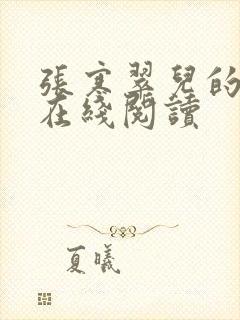 張寒翠兒的
在綫閱讀
夏曦